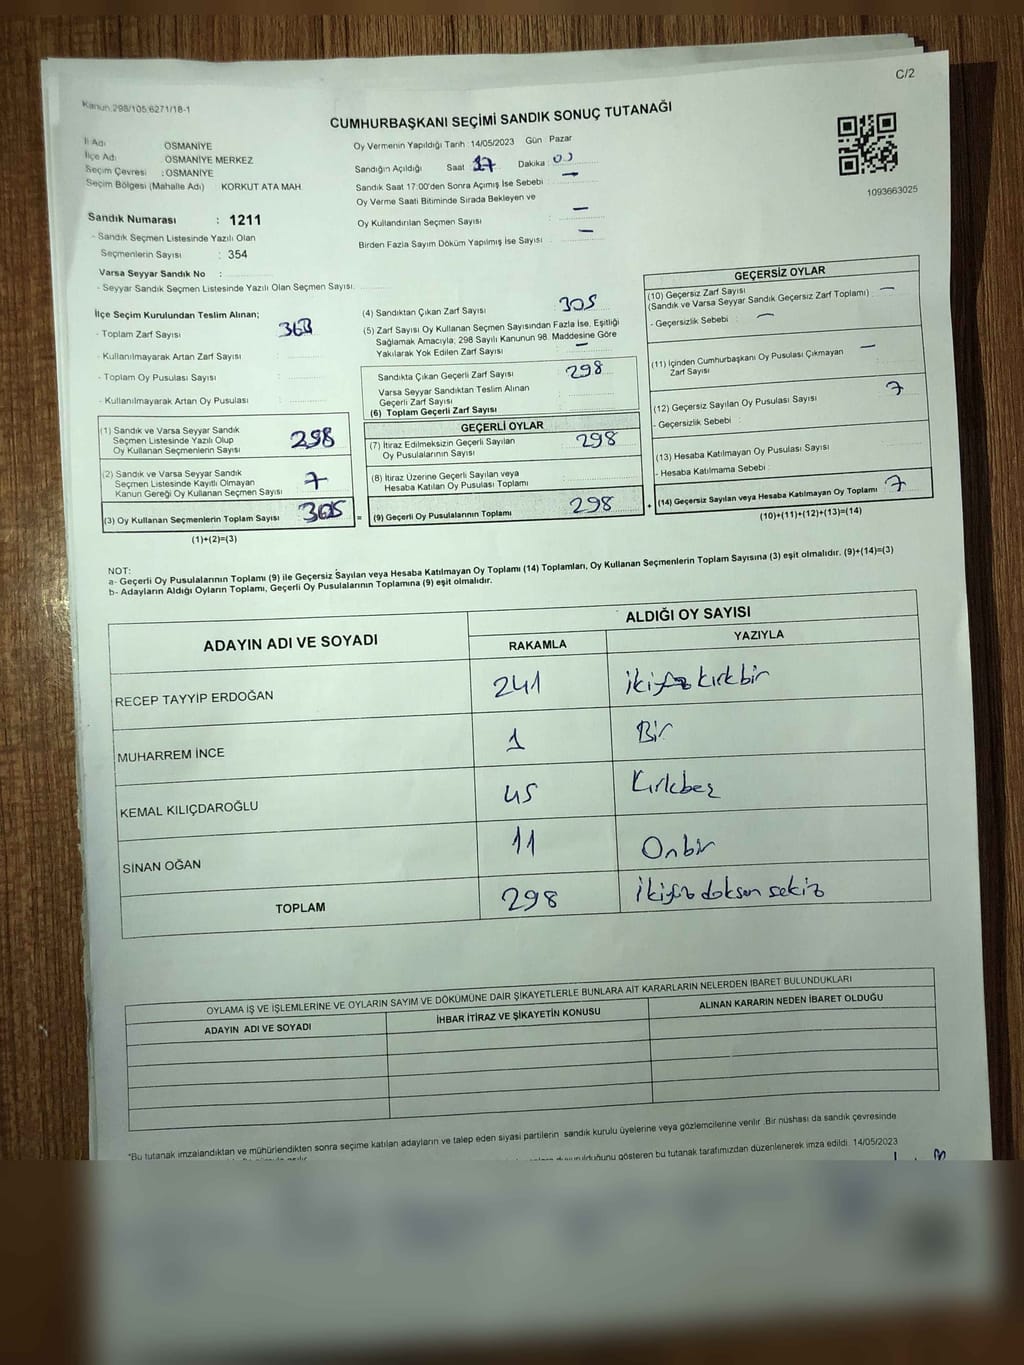 C/2
Kanun:298/105;6271/18-1
CUMHURBAŞKANI SEÇİMİ SANDIK SONUÇ TUTANAĞI
İl Adı OSMANİYE
İlçe Adı OSMANİYE MERKEZ
Seçim Çevresi : OSMANİYE
Seçim Bölgesi (Mahalle Adı) KORKUT ATA MAH.
Sandık Numarası : 1211
- Sandık Seçmen Listesinde Yazılı Olan
Seçmenlerin Sayısı : 354
Varsa Seyyar Sandık No :
- Seyyar Sandık Seçmen Listesinde Yazılı Olan Seçmen Sayısı:
Oy Vermenin Yapıldığı Tarih :14/05/2023 Gün : Pazar
Sandığın Açıldığı Saat 17 Dakika 00
Sandık Saat 17:00'den Sonra Açımış İse Sebebi : —
Oy Verme Saati Bitiminde Sırada Bekleyen ve
Oy Kullandırılan Seçmen Sayısı : —
Birden Fazla Sayım Döküm Yapılmış İse Sayısı : —
1093663025
İlçe Seçim Kurulundan Teslim Alınan;
- Toplam Zarf Sayısı : 363
- Kullanılmayarak Artan Zarf Sayısı :
- Toplam Oy Pusulası Sayısı :
- Kullanılmayarak Artan Oy Pusulası :
(1) Sandık ve Varsa Seyyar Sandık
Seçmen Listesinde Yazılı Olup
Oy Kullanan Seçmenlerin Sayısı 298
(2) Sandık ve Varsa Seyyar Sandık
Seçmen Listesinde Kayıtlı Olmayan
Kanun Gereği Oy Kullanan Seçmen Sayısı 7
(3) Oy Kullanan Seçmenlerin Toplam Sayısı 305 =
(1)+(2)=(3)
(4) Sandıktan Çıkan Zarf Sayısı 305
(5) Zarf Sayısı Oy Kullanan Seçmen Sayısından Fazla İse, Eşitliği
Sağlamak Amacıyla; 298 Sayılı Kanunun 98. Maddesine Göre
Yakılarak Yok Edilen Zarf Sayısı : —
Sandıkta Çıkan Geçerli Zarf Sayısı 298
Varsa Seyyar Sandıktan Teslim Alınan
Geçerli Zarf Sayısı
(6) Toplam Geçerli Zarf Sayısı
GEÇERLİ OYLAR
(7) İtiraz Edilmeksizin Geçerli Sayılan
Oy Pusulalarının Sayısı : 298
(8) İtiraz Üzerine Geçerli Sayılan veya
Hesaba Katılan Oy Pusulası Toplamı
(9) Geçerli Oy Pusulalarının Toplamı 298 +
GEÇERSİZ OYLAR
(10) Geçersiz Zarf Sayısı
(Sandık ve Varsa Seyyar Sandık Geçersiz Zarf Toplamı) —
- Geçersizlik Sebebi : —
(11) İçinden Cumhurbaşkanı Oy Pusulası Çıkmayan —
Zarf Sayısı
(12) Geçersiz Sayılan Oy Pusulası Sayısı 7
- Geçersizlik Sebebi :
(13) Hesaba Katılmayan Oy Pusulası Sayısı
- Hesaba Katılmama Sebebi :
(14) Geçersiz Sayılan veya Hesaba Katılmayan Oy Toplamı 7
(10)+(11)+(12)+(13)=(14)
NOT:
a- Geçerli Oy Pusulalarının Toplamı (9) ile Geçersiz Sayılan veya Hesaba Katılmayan Oy Toplamı (14) Toplamları, Oy Kullanan Seçmenlerin Toplam Sayısına (3) eşit olmalıdır. (9)+(14)=(3)
b- Adayların Aldığı Oyların Toplamı, Geçerli Oy Pusulalarının Toplamına (9) eşit olmalıdır.
ADAYIN ADI VE SOYADI ALDIĞI OY SAYISI
RAKAMLA YAZIYLA
RECEP TAYYİP ERDOĞAN 241 ikiyüz kırkbir
MUHARREM İNCE 1 Bir
KEMAL KILIÇDAROĞLU 45 Kırkbeş
SİNAN OĞAN 11 Onbir
TOPLAM 298 ikiyüz doksan sekiz
OYLAMA İŞ VE İŞLEMLERİNE VE OYLARIN SAYIM VE DÖKÜMÜNE DAİR ŞİKAYETLERLE BUNLARA AİT KARARLARIN NELERDEN İBARET BULUNDUKLARI
ADAYIN ADI VE SOYADI İHBAR İTİRAZ VE ŞİKAYETİN KONUSU ALINAN KARARIN NEDEN İBARET OLDUĞU
*Bu tutanak imzalandıktan ve mühürlendikten sonra seçime katılan adayların ve talep eden siyasi partilerin sandık kurulu üyelerine veya gözlemcilerine verilir .Bir nüshası da sandık çevresinde
gösteren bu tutanak tarafımızdan düzenlenerek imza edildi. 14/05/2023